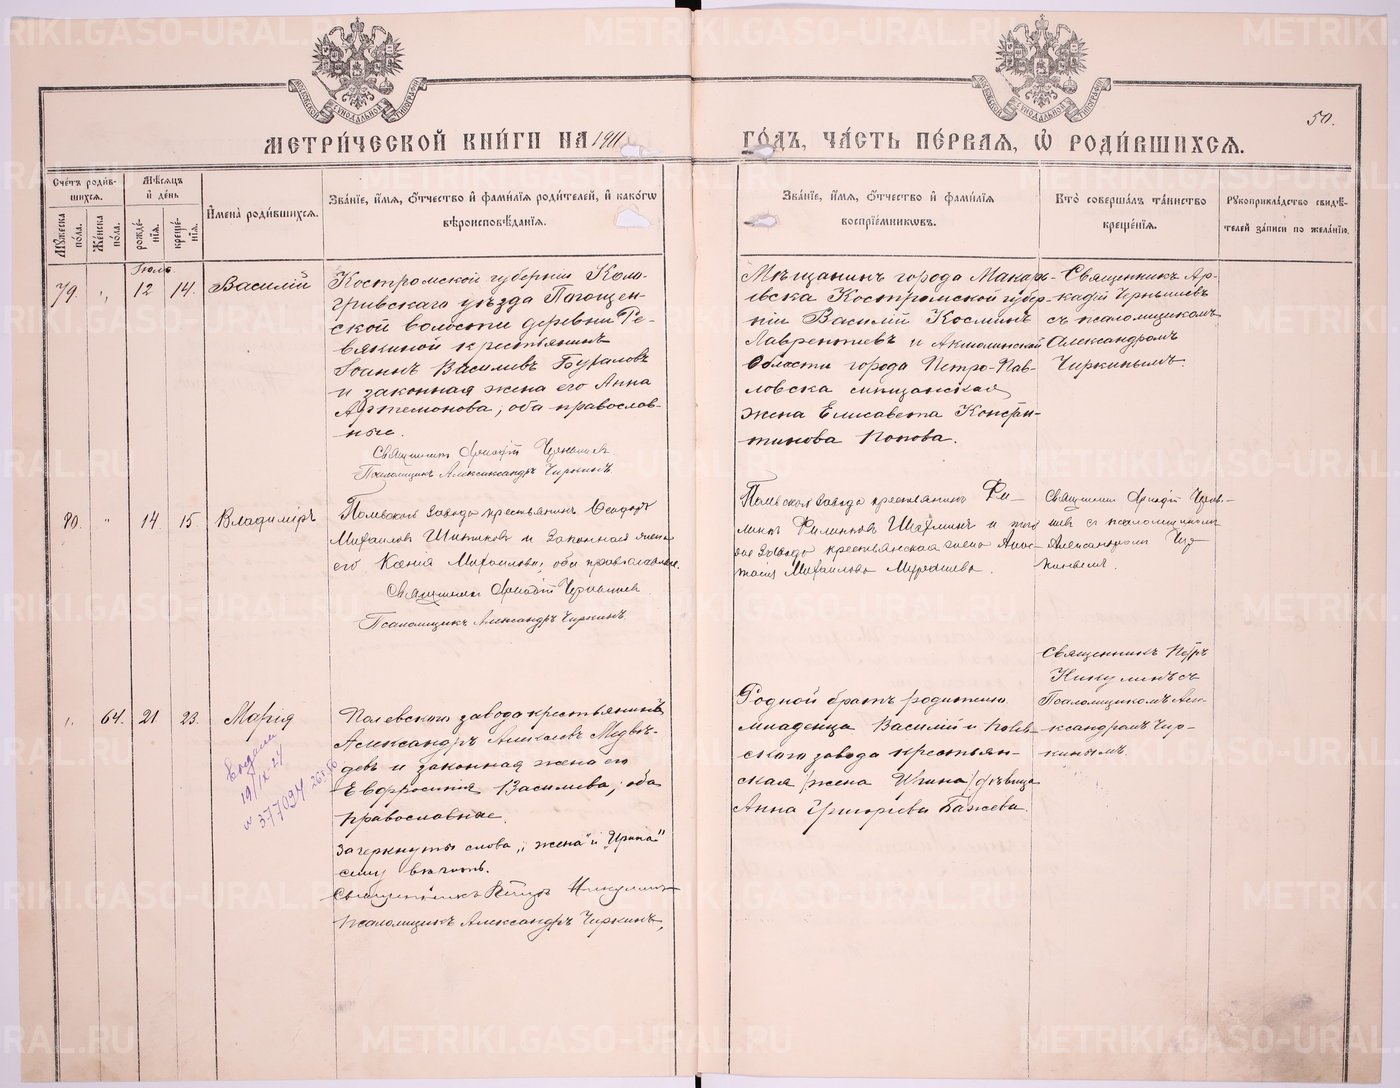 МЕТРИ́ЧЕСКОЙ КНИ́ГИ НА 1911
ГО́ДЪ, ЧА́СТЬ ПЕ́РВАЯ, Ѿ РОДИ́ВШИХСЯ.
50.
МОСКОВСКОЙ СѴНОДАЛЬНОЙ ТИПОГРАФІИ
МОСКОВСКОЙ СѴНОДАЛЬНОЙ ТИПОГРАФІИ
Сче́тъ роди́в-
шихся.
Мꙋ́жеска по́ла.
Же́нска по́ла.
Мѣ́сяцъ
и҆ де́нь
рожде́-
нія.
креще́-
нія.
И҆мена̀ роди́вшихся.
Зва́ніе, и҆́мя, ѻ҆́тчество и҆ фами́лія роди́телей, и҆ како́гѡ
вѣроисповѣ́данія.
Зва́ніе, и҆́мя, ѻ҆́тчество и҆ фами́лія
воспріе́мниковъ.
Кто̀ соверша́лъ та́инство
креще́нія.
Рꙋкоприкла́дство свидѣ́-
телей за́писи по жела́нію.
Іюль
79. " 12 14. Василій
Костромской губерніи Коло-
гривскаго уѣзда
ской волости деревни Ре-
вякиной крестьянинъ
Іоаннъ Василіевъ
и законная жена его Анна
Артемонова, оба православ-
ные.
Священникъ Аркадій Чернышевъ
Псаломщикъ Александръ Чиркинъ.
Мѣщанинъ города Макарь-
евска Костромской губер-
ніи Василій Косминъ
Лаврентьевъ и Акмолинской
Области города Петро-Пав-
ловска мѣщанская
жена Елисавета Констан-
тинова Попова.
Священникъ Ар-
кадій Чернышевъ
съ псаломщикомъ
Александромъ
Чиркинымъ.
" 14. 15. Владиміръ
Полевскаго завода крестьянинъ
Михаиловъ и законная жена
его Ксенія Михаилова, оба православные.
Священникъ Аркадій Чернышевъ
Псаломщикъ Александръ Чиркинъ.
Полевскаго завода крестьянинъ Фи-
липъ Филиповъ и того
же завода крестьянская жена Анас-
тасія Михаилова
Священникъ Аркадій Черны-
шевъ съ псаломщикомъ
Александромъ Чир-
кинымъ.
" 64. 21 23. Марія
Полевского завода крестьянинъ
Александръ Алексѣевъ Медвѣ-
девъ и законная жена его
Евфросинія Василиева, оба
православные.
Зачеркнуты слова "жена" и "Ирина"
Священникъ Петръ Никулинъ
Псаломщикъ Александръ Чиркинъ.
Родной братъ родителю
младенца Василій и Полев-
ского завода крестьян-
ская /жена Ирина/ дѣвица
Анна Григорьева Бажева.
Священникъ Петръ
Никулинъ съ
Псаломщикомъ Але-
ксандромъ Чир-
кинымъ.
Выдана
19/IX-24
№ 377097